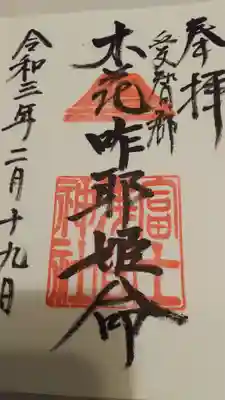 奉拝
愛賀郡
木花咲耶姫命
富士神社
令和三年二月十九日